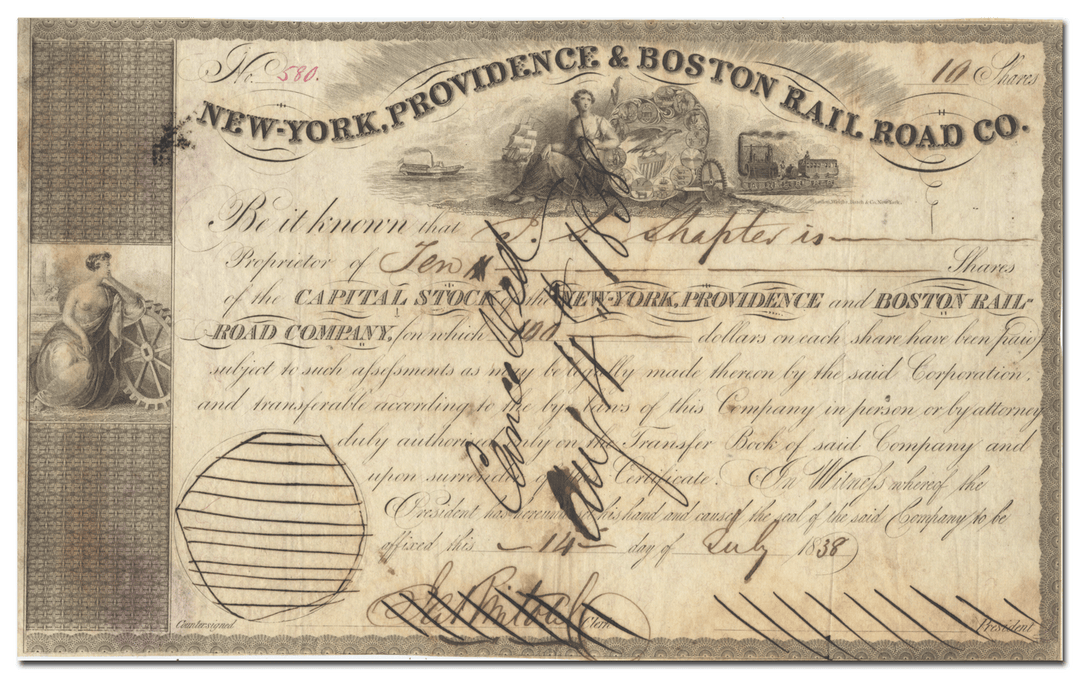 No. 580.
10 Shares
NEW-YORK, PROVIDENCE & BOSTON RAIL ROAD CO.
Be it known that Shapter is
Proprietor of Ten Shares
of the CAPITAL STOCK of the NEW-YORK, PROVIDENCE and BOSTON RAIL-
ROAD COMPANY, (on which 100 dollars on each share have been paid)
subject to such assessments as may be legally made thereon by the said Corporation,
and transferable according to the by laws of this Company in person or by attorney
duly authorized only on the Transfer Book of said Company and
upon surrender of Certificate. In Witness whereof the
President has hereunto his hand and caused the seal of the said Company to be
affixed this 14 day of July 1838
Countersigned Clerk President
Cancelled